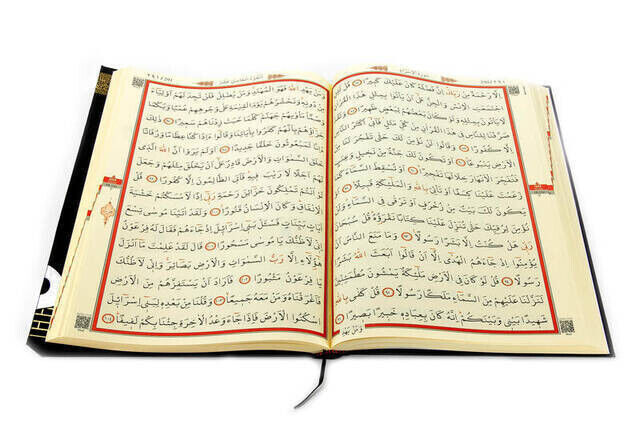 سُورَةُ الْإِسْرَاءِ
إِلَّا رَحْمَةً مِنْ رَبِّكَ إِنَّ فَضْلَهُ كَانَ عَلَيْكَ كَبِيرًا ﴿٨٧﴾ قُلْ لَئِنِ
اجْتَمَعَتِ الْإِنْسُ وَالْجِنُّ عَلٰى أَنْ يَأْتُوا بِمِثْلِ هٰذَا
الْقُرْاٰنِ لَا يَأْتُونَ بِمِثْلِهِ وَلَوْ كَانَ بَعْضُهُمْ لِبَعْضٍ ظَهِيرًا ﴿٨٨﴾ وَلَقَدْ
صَرَّفْنَا لِلنَّاسِ فِي هٰذَا الْقُرْاٰنِ مِنْ كُلِّ مَثَلٍ فَأَبٰى أَكْثَرُ النَّاسِ
إِلَّا كُفُورًا ﴿٨٩﴾ وَقَالُوا لَنْ نُؤْمِنَ لَكَ حَتّٰى تَفْجُرَ لَنَا مِنَ
الْأَرْضِ يَنْبُوعًا ﴿٩٠﴾ أَوْ تَكُونَ لَكَ جَنَّةٌ مِنْ نَخِيلٍ وَعِنَبٍ
فَتُفَجِّرَ الْأَنْهَارَ خِلَالَهَا تَفْجِيرًا ﴿٩١﴾ أَوْ تُسْقِطَ السَّمَاءَ كَمَا
زَعَمْتَ عَلَيْنَا كِسَفًا أَوْ تَأْتِيَ بِاللّٰهِ وَالْمَلٰئِكَةِ قَبِيلًا ﴿٩٢﴾ أَوْ
يَكُونَ لَكَ بَيْتٌ مِنْ زُخْرُفٍ أَوْ تَرْقٰى فِي السَّمَاءِ وَلَنْ
نُؤْمِنَ لِرُقِيِّكَ حَتّٰى تُنَزِّلَ عَلَيْنَا كِتَابًا نَقْرَؤُهُ قُلْ سُبْحَانَ
رَبِّي هَلْ كُنْتُ إِلَّا بَشَرًا رَسُولًا ﴿٩٣﴾ وَمَا مَنَعَ النَّاسَ أَنْ
يُؤْمِنُوا إِذْ جَاءَهُمُ الْهُدٰى إِلَّا أَنْ قَالُوا أَبَعَثَ اللّٰهُ بَشَرًا
رَسُولًا ﴿٩٤﴾ قُلْ لَوْ كَانَ فِي الْأَرْضِ مَلٰئِكَةٌ يَمْشُونَ مُطْمَئِنِّينَ
لَنَزَّلْنَا عَلَيْهِمْ مِنَ السَّمَاءِ مَلَكًا رَسُولًا ﴿٩٥﴾ قُلْ كَفٰى بِاللّٰهِ
شَهِيدًا بَيْنِي وَبَيْنَكُمْ إِنَّهُ كَانَ بِعِبَادِهِ خَبِيرًا بَصِيرًا ﴿٩٦﴾
وَمَنْ يَهْدِ
وَمَنْ يَهْدِ اللّٰهُ فَهُوَ الْمُهْتَدِ وَمَنْ يُضْلِلْ فَلَنْ تَجِدَ لَهُمْ أَوْلِيَاءَ
مِنْ دُونِهِ وَنَحْشُرُهُمْ يَوْمَ الْقِيٰمَةِ عَلٰى وُجُوهِهِمْ عُمْيًا وَبُكْمًا
وَصُمًّا مَأْوٰيهُمْ جَهَنَّمُ كُلَّمَا خَبَتْ زِدْنَاهُمْ سَعِيرًا ﴿٩٧﴾ ذٰلِكَ
جَزَاؤُهُمْ بِأَنَّهُمْ كَفَرُوا بِاٰيَاتِنَا وَقَالُوا أَإِذَا كُنَّا عِظَامًا وَرُفَاتًا
أَإِنَّا لَمَبْعُوثُونَ خَلْقًا جَدِيدًا ﴿٩٨﴾ أَوَلَمْ يَرَوْا أَنَّ اللّٰهَ الَّذِي
خَلَقَ السَّمٰوَاتِ وَالْأَرْضَ قَادِرٌ عَلٰى أَنْ يَخْلُقَ مِثْلَهُمْ وَجَعَلَ
لَهُمْ أَجَلًا لَا رَيْبَ فِيهِ فَأَبَى الظَّالِمُونَ إِلَّا كُفُورًا ﴿٩٩﴾ قُلْ
لَوْ أَنْتُمْ تَمْلِكُونَ خَزَائِنَ رَحْمَةِ رَبِّي إِذًا لَأَمْسَكْتُمْ خَشْيَةَ
الْإِنْفَاقِ وَكَانَ الْإِنْسَانُ قَتُورًا ﴿١٠٠﴾ وَلَقَدْ اٰتَيْنَا مُوسٰى تِسْعَ
اٰيَاتٍ بَيِّنَاتٍ فَسْئَلْ بَنِي إِسْرَائِيلَ إِذْ جَاءَهُمْ فَقَالَ لَهُ فِرْعَوْنُ
إِنِّي لَأَظُنُّكَ يَا مُوسٰى مَسْحُورًا ﴿١٠١﴾ قَالَ لَقَدْ عَلِمْتَ مَا أَنْزَلَ
هٰؤُلَاءِ إِلَّا رَبُّ السَّمٰوَاتِ وَالْأَرْضِ بَصَائِرَ وَإِنِّي لَأَظُنُّكَ
يَا فِرْعَوْنُ مَثْبُورًا ﴿١٠٢﴾ فَأَرَادَ أَنْ يَسْتَفِزَّهُمْ مِنَ الْأَرْضِ
فَأَغْرَقْنَاهُ وَمَنْ مَعَهُ جَمِيعًا ﴿١٠٣﴾ وَقُلْنَا مِنْ بَعْدِهِ لِبَنِي إِسْرَائِيلَ
اسْكُنُوا الْأَرْضَ فَإِذَا جَاءَ وَعْدُ الْاٰخِرَةِ جِئْنَا بِكُمْ لَفِيفًا ﴿١٠٤﴾